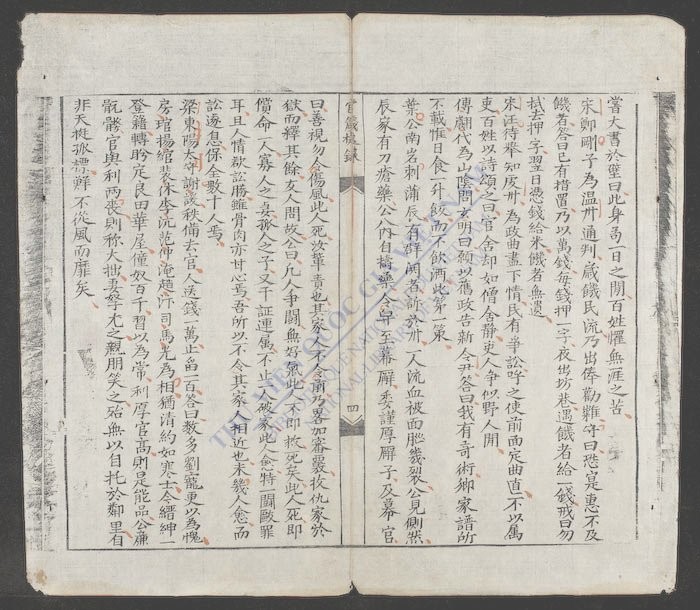 當大書於壁曰此身苟一日之閒百姓懼無涯之苦
宋鄭剛子為温州通判歲饑民流乃出俸勸糶守曰恐寔惠不及
饑者答曰已有措置乃以萬錢每錢押一字夜出坊巷遇饑者給一錢戒曰勿
拭去押字翌日憑錢給米饑者無遺
宋汪待舉知處州為政曲盡下情民有爭訟呼之使前面定曲直不以属
吏百姓以詩頌之曰官舍却如僧舍靜吏人爭似野人閒
傅翽代為山陰問玄明曰願以舊政告新令尹答曰我有奇術卿家譜所
不載惟日食一升飯而不飲酒此第一策
葉公南岩刺蒲辰有群鬪者訴於州一人流血被面脆幾裂公見惻然
辰家有刀瘡藥公入內自擣藥令舁至幕廨委謹厚廨子及幕官
官箴捷錄
四
曰善視勿令傷風此人死汝輩責也其家人不令前乃畧加審覈按仇家於
獄而釋其餘女人問故公曰凡人爭鬪無好氣此人不即救死矣此人死即
償命一人寡人之妻孤人之子又干証連属不止一人破家此人愈特一鬪毆罪
耳且人情欲訟勝雖骨肉亦甘心焉吾所以不令其家人相近也未幾人愈而
訟遂息保全數十人焉
梁東陽太守謝譓秩備去官人送錢一萬止留一百答曰數多劉寵更以為愧
房琯揚綰裴休李沆范仲淹趙汴司馬光為相猶清約如寒士今縉紳一
登籍轉盼定良田華屋僮奴百千習以為常利厚官高則是能品公廉
骯髒官與利兩喪則称大拙妻孥尤之親朋笑之殆無以自托於鄰里有
非天挺孤標鮮不從風而靡矣